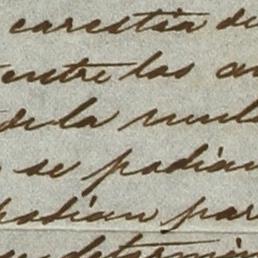 carestia de
entre las
de la
se podian
podian par
determin